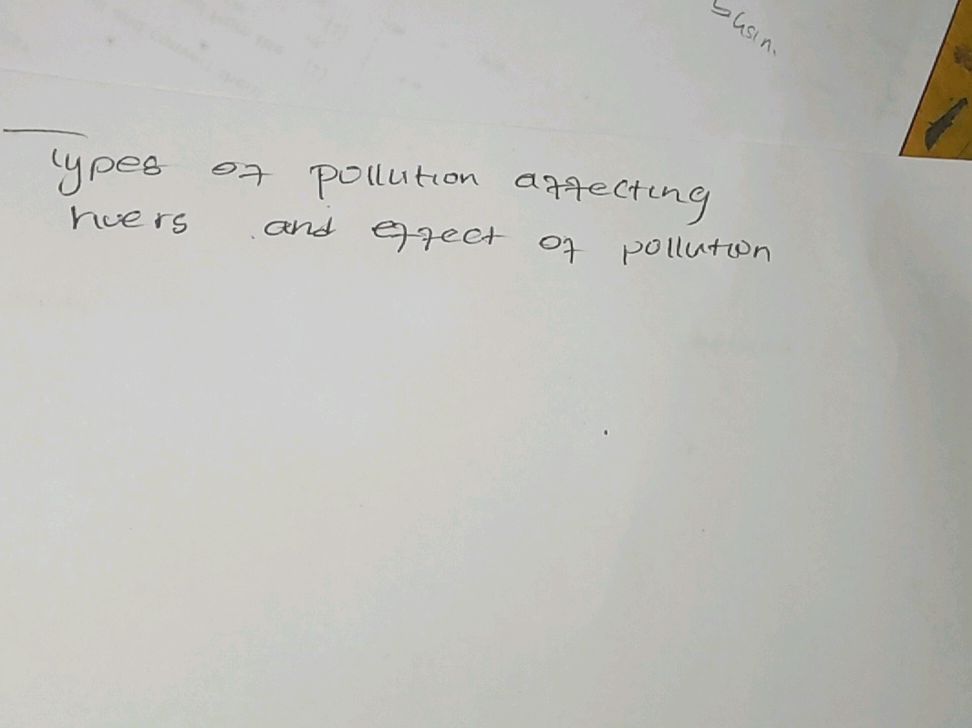 Gsin.
Types of pollution affecting
rivers and effect of pollution